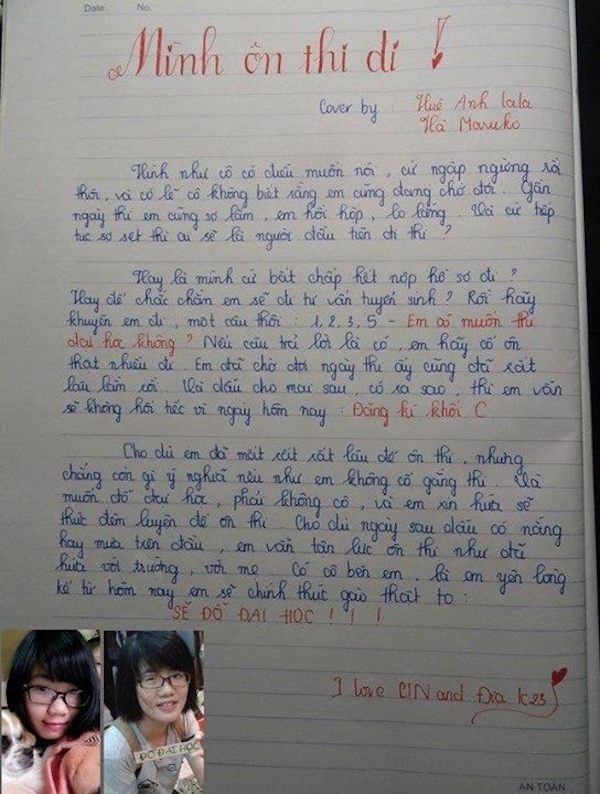 Date. No.
Mình ôn thi đi !
Cover by : Huê Anh lala
Hà Maruko
Hình như cô có điều muốn nói , cứ ngập ngừng rồi
thôi, và có lẽ cô không biết rằng em cũng đang chờ đợi . Gần
ngày thi em cũng sợ lắm , em hồi hộp , lo lắng . Và cứ tiếp
tục sợ sệt thì ai sẽ là người đầu tiên đi thi ?
Hay là mình cứ bất chấp hết nộp hồ sơ đi ?
Hay để chắc chắn em sẽ đi tư vấn tuyển sinh ? Rồi hãy
khuyên em đi , một câu thôi : 1, 2, 3, 5 - Em có muốn thi
đại học không ? Nếu câu trả lời là có , em hãy cố ôn
thật nhiều đi . Em đã chờ đợi ngày thi ấy cũng đã rất
lâu lắm rồi . Và dẫu cho mai sau , có ra sao , thì em vẫn
sẽ không hối tiếc vì ngày hôm nay : Đăng kí khối C
Cho dù em đã mất rất rất lâu để ôn thi , nhưng
chẳng còn gì ý nghĩa nếu như em không cố gắng thi . Và
muốn đỗ đại học , phải không cô , và em xin hứa sẽ
thức đêm luyện đề ôn thi . Cho dù ngày sau dẫu có nắng
hay mưa trên đầu , em vẫn tận lực ôn thi như đã
hứa với trường , với mẹ . Có cô bên em , là em yên lòng
kể từ hôm nay em sẽ chính thức gào thật to :
SẼ ĐỖ ĐẠI HỌC ! ! !
I love CTN and Địa K23
ĐỖ ĐẠI HỌC
AN TOÀN